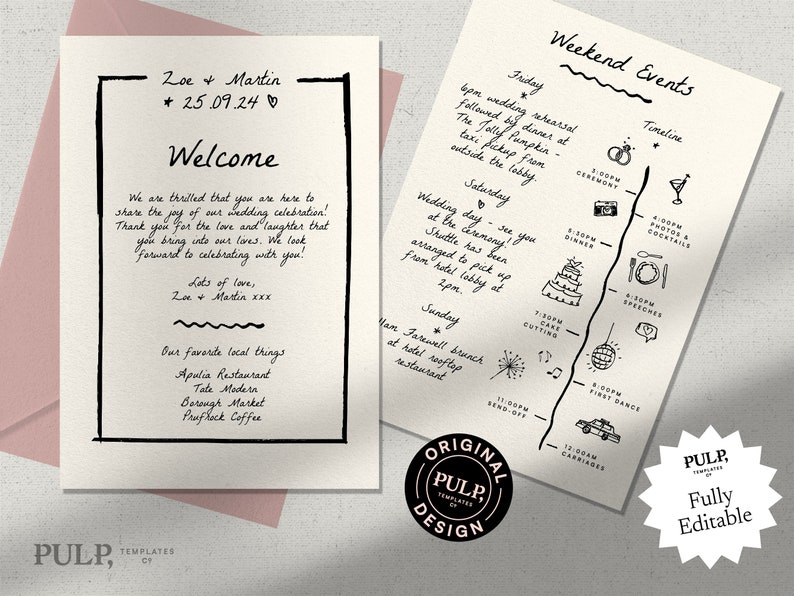 Zoe & Martin
* 25.09.24
Welcome
We are thrilled that you are here to
share the joy of our wedding celebration!
Thank you for the love and laughter that
you bring into our lives. We look
forward to celebrating with you!
Lots of love,
Zoe & Martin xxx
Our favorite local things
Apulia Restaurant
Tate Modern
Borough Market
Prufrock Coffee
Weekend Events
Friday
*
6pm wedding rehearsal
followed by dinner at
The Jolly Pumpkin -
taxi pickup from
outside the lobby.
Saturday
Wedding day - see you
at the ceremony!
Shuttle has been
arranged to pick up
from hotel lobby at
2pm.
Sunday
*
11am Farewell brunch
at hotel rooftop
restaurant
Timeline
*
3:00PM
CEREMONY
4:00PM
PHOTOS &
COCKTAILS
5:30PM
DINNER
6:30PM
SPEECHES
7:30PM
CAKE
CUTTING
8:00PM
FIRST DANCE
11:00PM
SEND-OFF
12:00AM
CARRIAGES
ORIGINAL
PULP,
TEMPLATES
Cº
DESIGN
PULP,
TEMPLATES
Cº
Fully
Editable
PULP, TEMPLATES
Cº